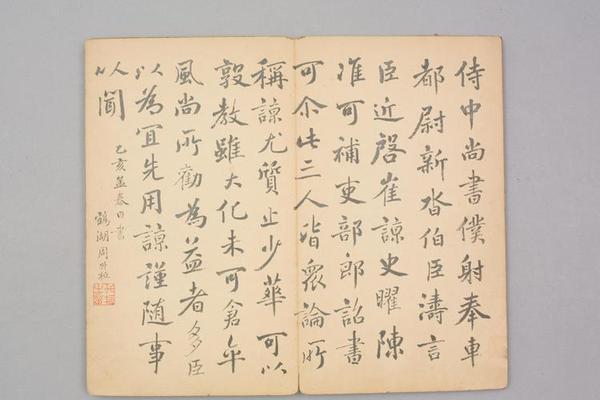 侍中尚書僕射奉車
都尉新沓伯臣濤言
臣近啓崔諒史曜陳
准可補吏部郎詔書
可尒此三人皆衆論所
稱諒尤質止少華可以
敦教雖大化未可倉卒
風尚所勸為益者多臣
以為宜先用諒謹隨事
以聞
乙亥孟春日書
鶴湖周升桓